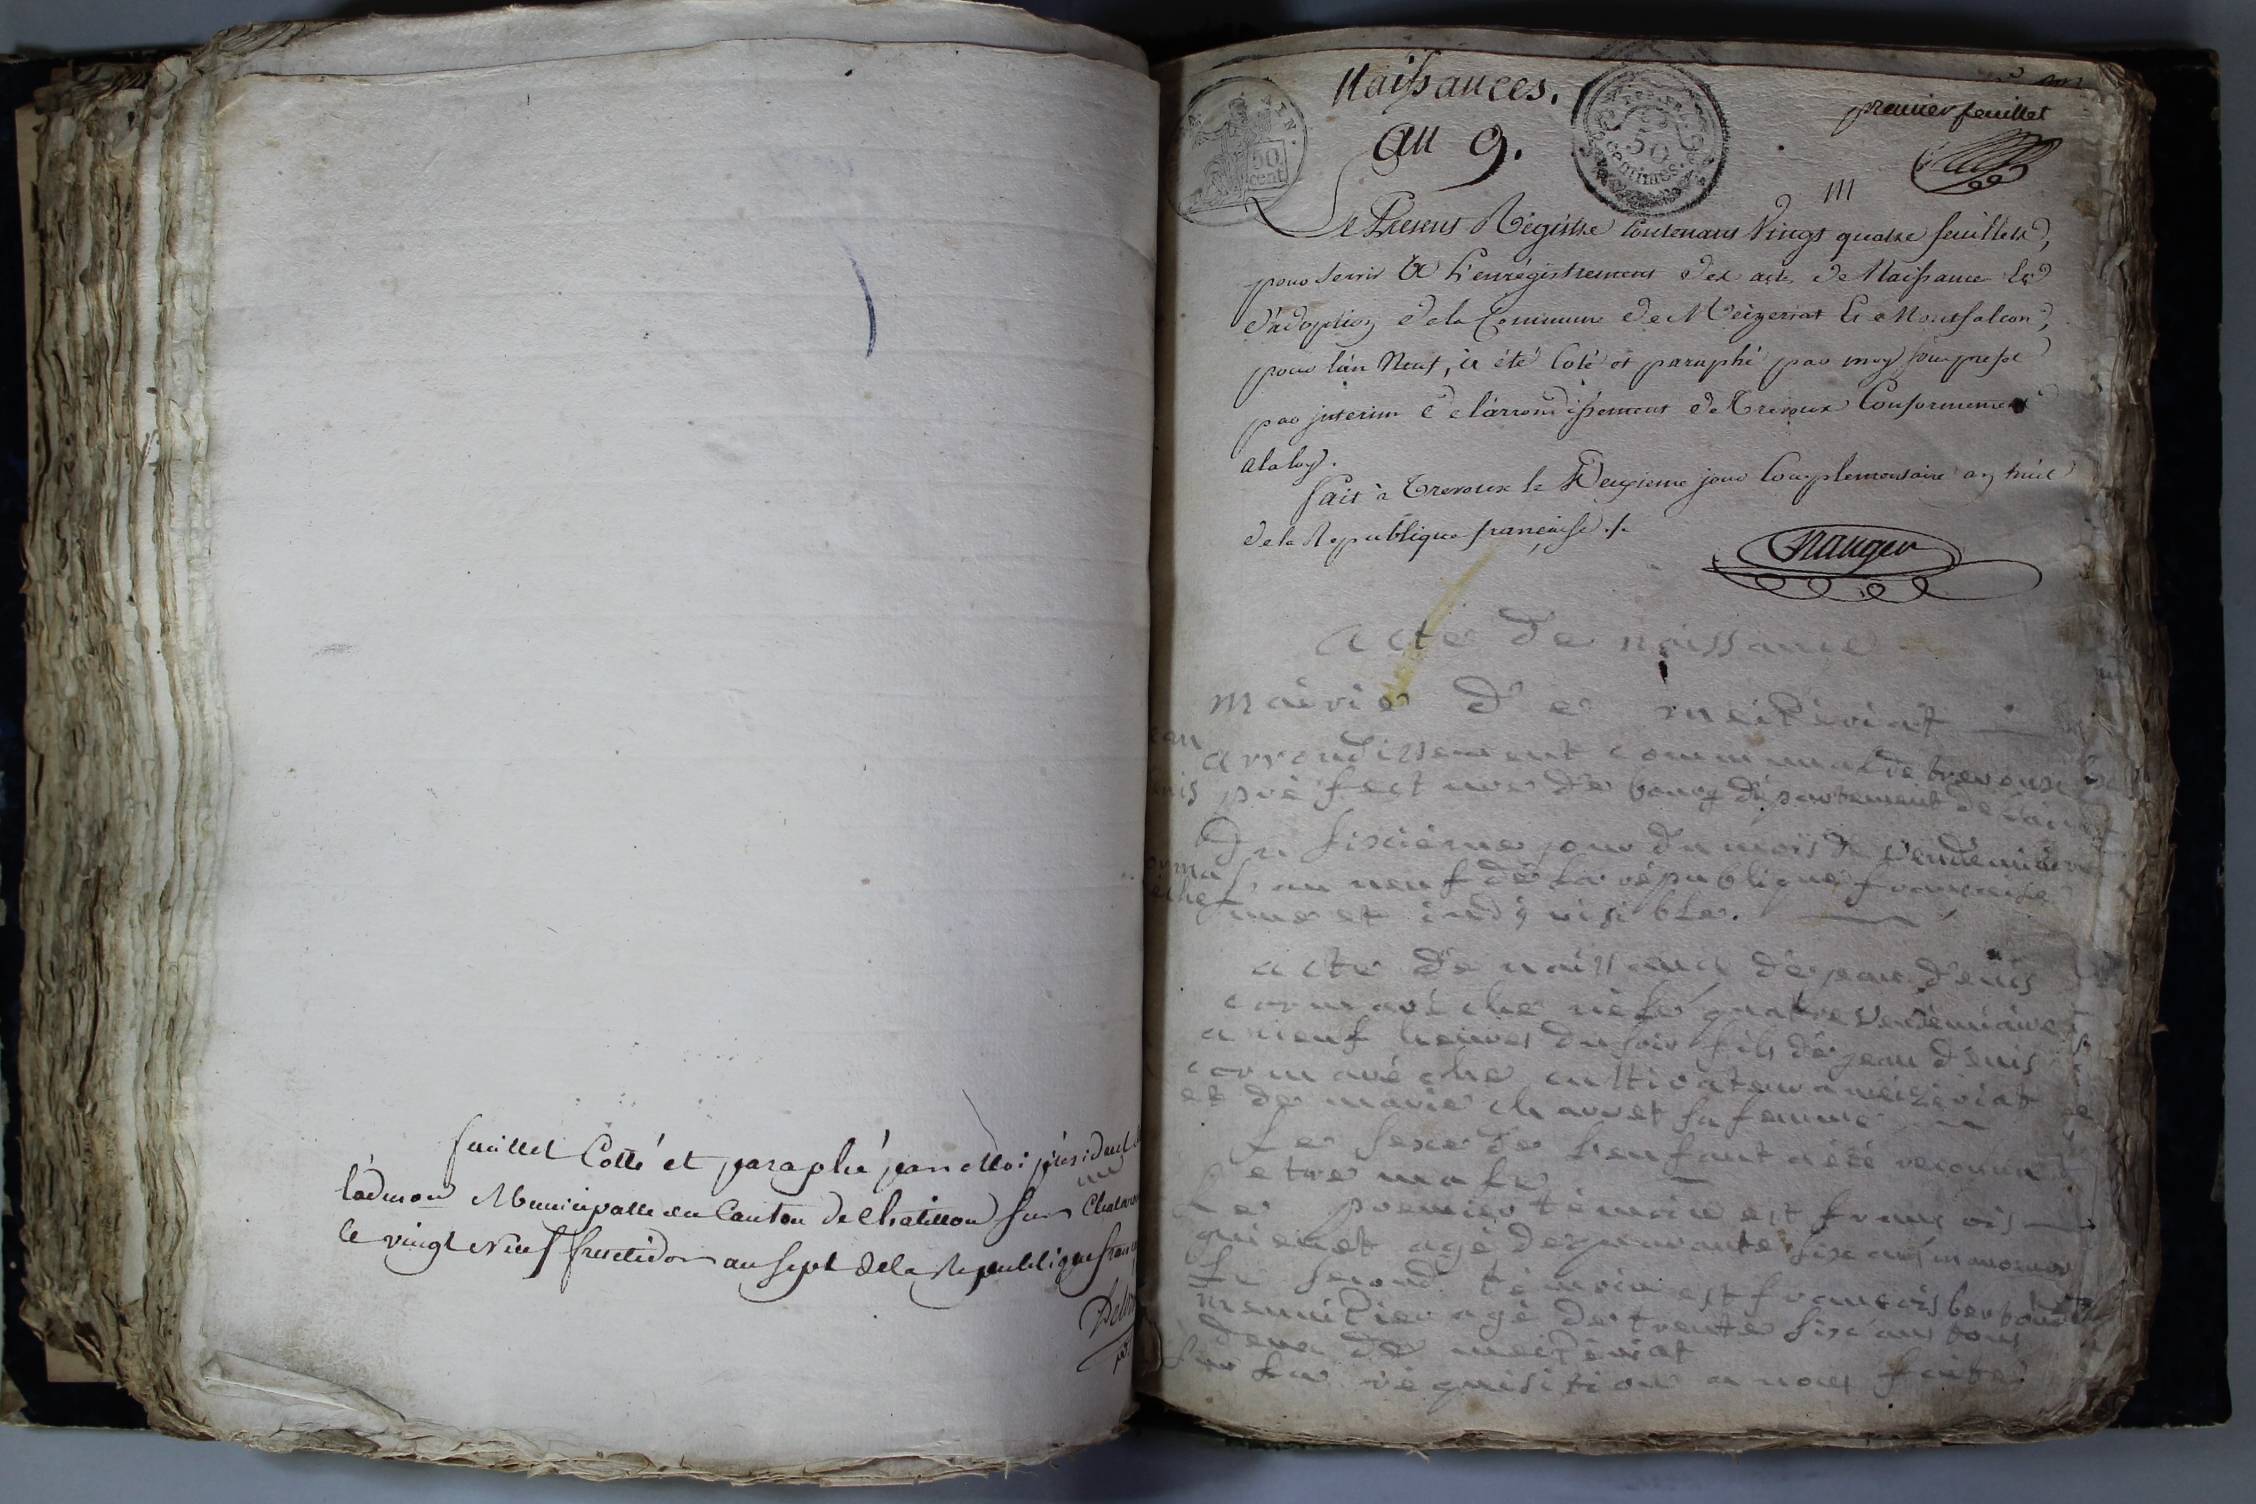 feuillet Cotté et paraphé par Moi président
ladmon Municipalle du Canton de Chatillon sur Chalaronne
le vingt Neuf fructidor an sept dela Republique
Naissances.
an 9.
50
cent
50
centimes.
premier feuillet
Le Present Régistre Contenant Vingt quatre feuillets,
pour servir a L'enrégistrement des acte de Naissance Et
d'adoption dela Commune de Meizeriat Et Montfalcon,
pour lan Neuf, à été Coté et paraphé par moy sou prefet
par jnterim de l'arrondissement de Trevoux Conformement
alaloy.
fait à Trevoux le Deuxieme jour Complementaire an huit
dela Republique française ./.
acte de naissance
mairie de meizériat
arrondissement communal de trevoux
préfecture de bourg département de lain
Du sixiéme jour du mois de vendémiaire
an neuf de la république française
une et indivisible.
acte de naissance de jean denis
cormaréche né le quatre vendémiaire
a neuf heures du soir fils de jean denis
cormaréche cultivateur a meizériat
et de marie charvet sa femme
Le sexe de l'enfant a été reconnu
etre male
Le premier témoin est francois
agé de quarante six ans
Le second témoin est francois
menuizier agé de trente six ans tous
deux de meizériat
sur la réquisition a nous faite